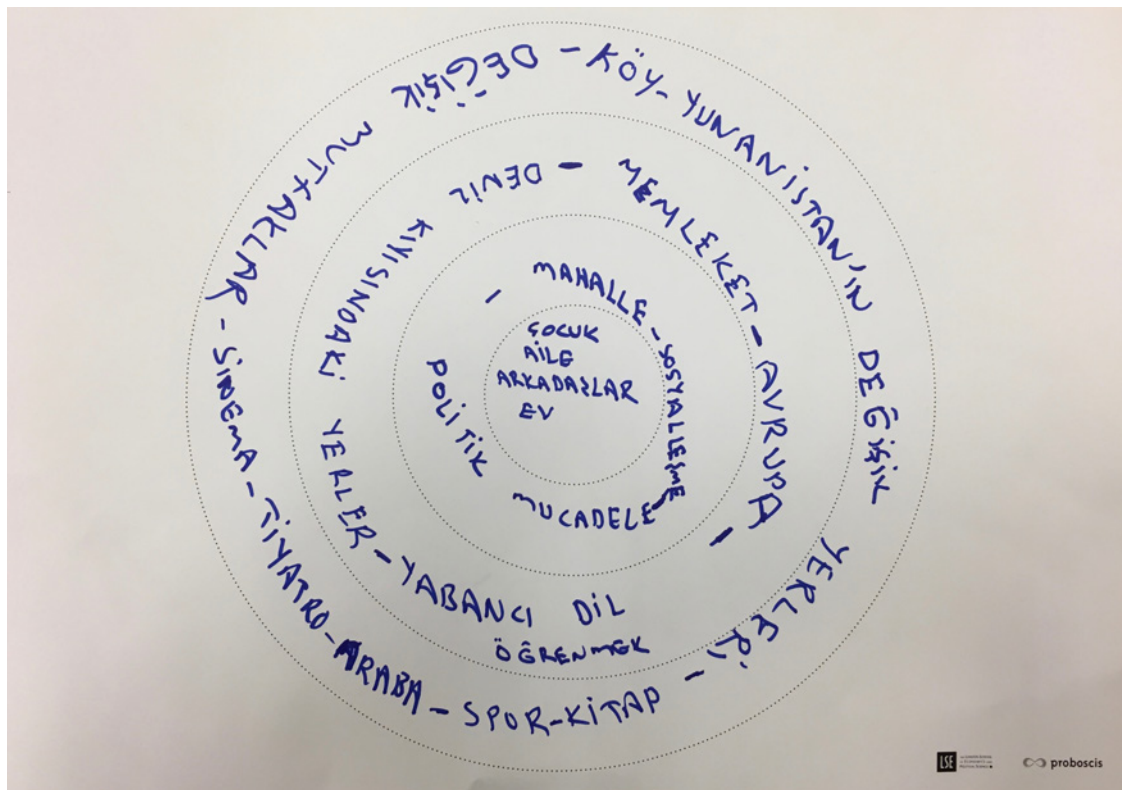 ÇOCUK
AİLE
ARKADAŞLAR
EV
MAHALLE - SOSYALLEŞME - POLİTİK MUCADELE -
MEMLEKET - AVRUPA - YABANCI DİL ÖĞRENMEK - DENİZ KIYISINDAKİ YERLER -
KÖY - YUNANİSTAN'IN DEĞİŞİK YERLERİ - SPOR - KİTAP - ARABA - TİYATRO - SİNEMA - DEĞİŞİK MUTFAKLAR -
LSE
proboscis